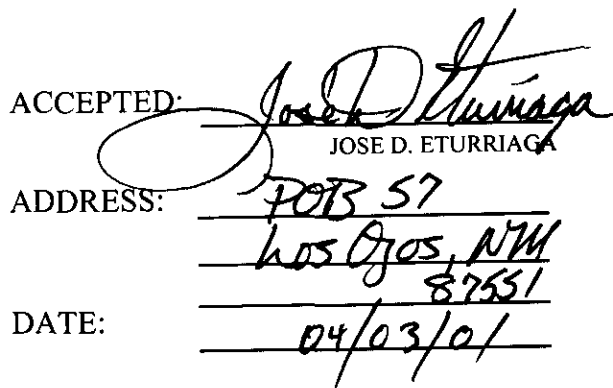 ACCEPTED: Joseh D Eturriaga
JOSE D. ETURRIAGA
ADDRESS: POB 57
Los Ojos, NM
87551
DATE: 04/03/01